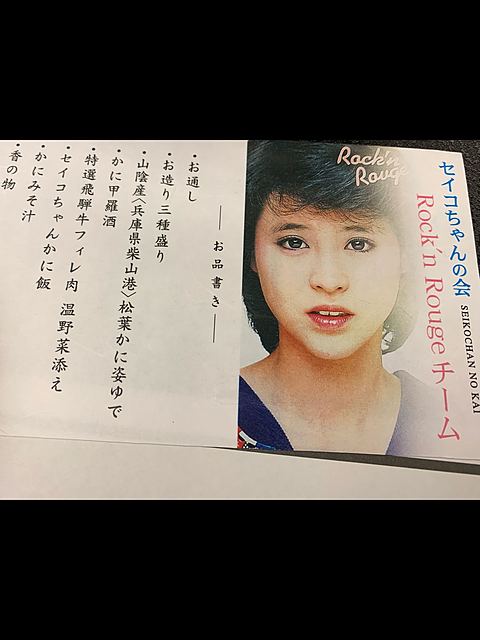 セイコちゃんの会
SEIKOCHAN NO KAI
Rock'n Rouge チーム
Rock'n
Rouge
― お品書き ―
・お通し
・お造り三種盛り
・山陰産〈兵庫県柴山港〉松葉かに姿ゆで
・かに甲羅酒
・特選飛騨牛フィレ肉 温野菜添え
・セイコちゃんかに飯
・かにみそ汁
・香の物